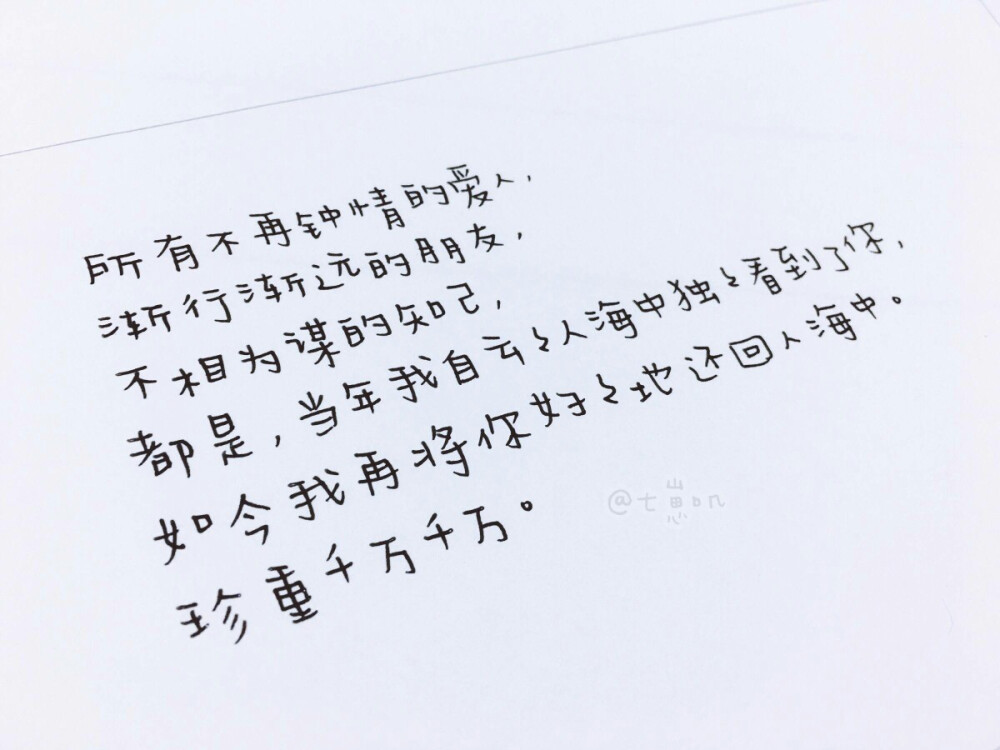 所有不再钟情的爱人，
渐行渐远的朋友，
不相为谋的知己，
都是，当年我自云々人海中独々看到了你，
如今我再将你好々地还回人海中。
珍重千万千万。